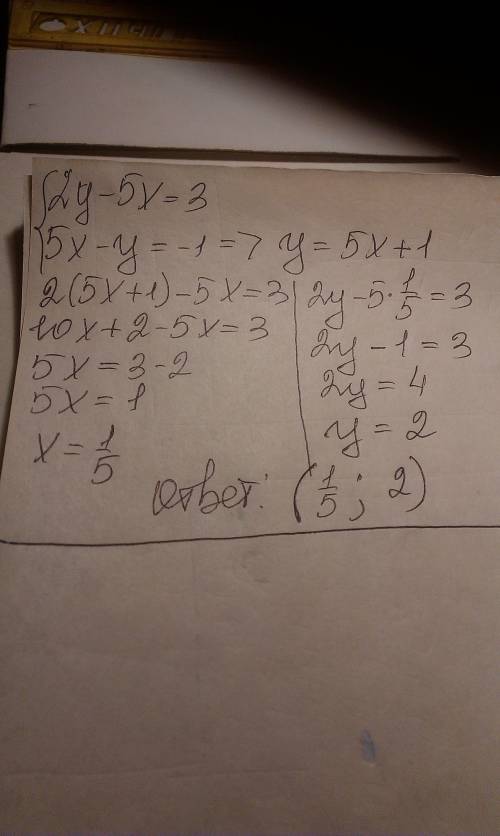 {2y-5x=3
{5x-y=-1=> y=5x+1
2(5x+1)-5x=3
10x+2-5x=3
5x=3-2
5x=1
x=1/5
2y-5·1/5=3
2y-1=3
2y=4
y=2
Ответ: (1/5; 2)